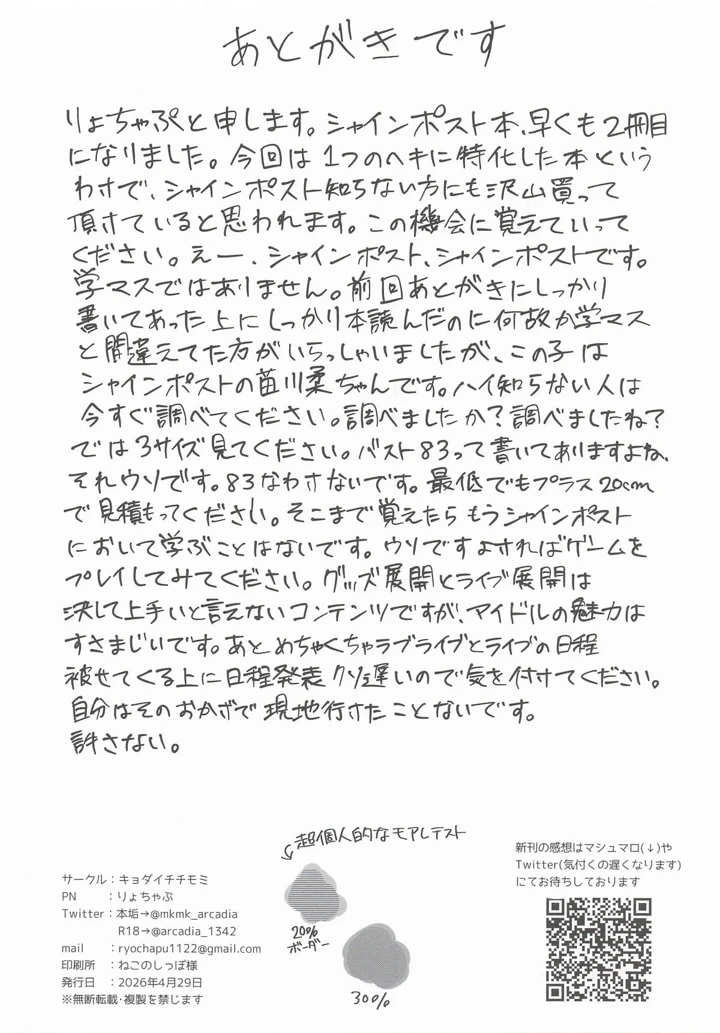 あとがきです
りょちゃぷと申します。シャインポスト本、早くも2冊目
になりました。今回は1つのヘキに特化した本という
わけで、シャインポスト知らない方にも沢山買って
頂けていると思われます。この機会に覚えていって
ください。えー、シャインポスト、シャインポストです。
学マスではありません。前回あとがきにしっかり
書いてあった上にしっかり本読んだのに何故か学マス
と間違えてた方がいらっしゃいましたが、この子は
シャインポストの苗川柔ちゃんです。ハイ知らない人は
今すぐ調べてください。調べましたか?調べましたね?
では3サイズ見てください。バスト83って書いてありますよね、
それウソです。83なわけないです。最低でもプラス20cm
で見積もってください。そこまで覚えたらもうシャインポスト
において学ぶことはないです。ウソですよければゲームを
プレイしてみてください。グッズ展開とライブ展開は
決して上手いと言えないコンテンツですが、アイドルの魅力は
すさまじいです。あとめちゃくちゃラブライブとライブの日程
被せてくる上に日程発表クソ遅いので気を付けてください。
自分はそのおかげで現地行けたことないです。
許さない。
超個人的なモアレテスト
20%
ボーダー
30%
サークル:キョダイチチモミ
PN :りょちゃぷ
Twitter:本垢→@mkmk_arcadia
R18→@arcadia_1342
mail :ryochapu1122@gmail.com
印刷所 :ねこのしっぽ様
発行日 :2026年4月29日
※無断転載・複製を禁じます
新刊の感想はマシュマロ(↓)や
Twitter(気付くの遅くなります)
にてお待ちしております